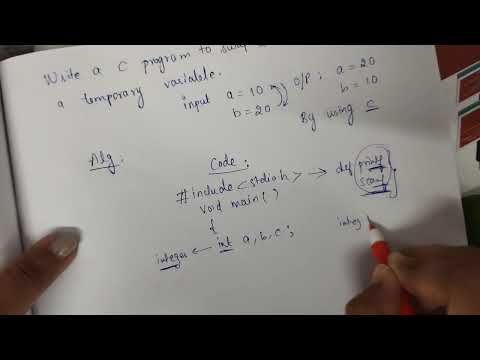 Write a C program to swap
a temporary variable.
input a = 10 O/P: a = 20
b = 20 b = 10
By using c
Alg: Code:
#include <stdio.h> → def printf
scanf
void main()
{
integer ← int a, b, c;
integ